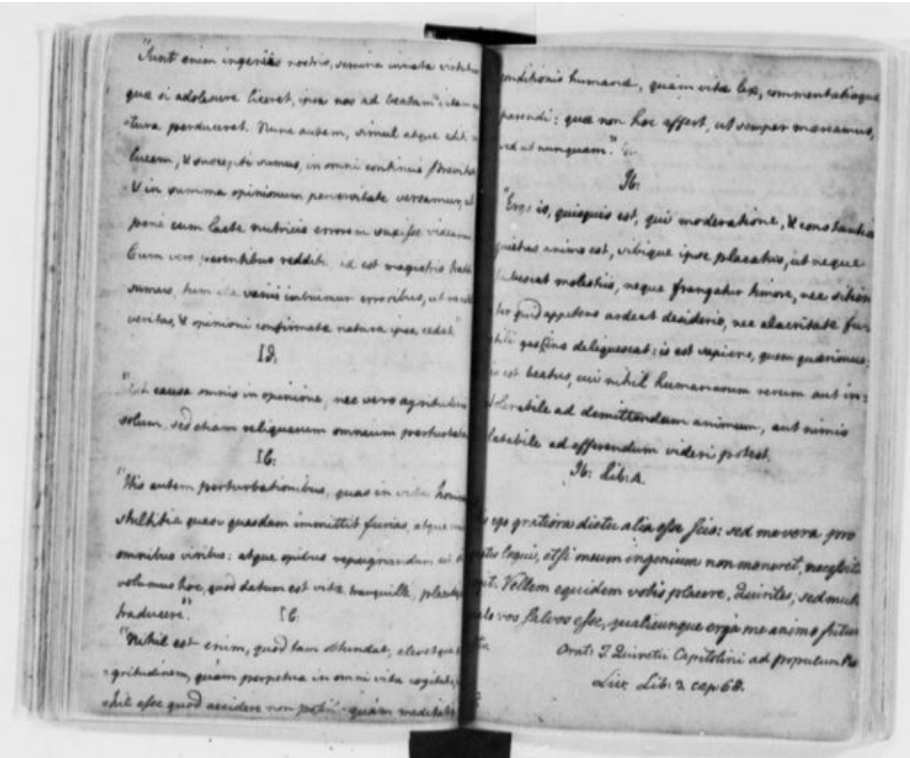 "Sunt enim ingeniis nostris, semina innata virtutu
quæ si adolescere liceret, ipsa nos ad beatam vitam
tura perduceret. Nunc autem, simul atque editi
lucem, & suscepti sumus, in omni continuo pravita
& in summa opinionum perversitate versamur, ut
pene cum lacte nutricis errorem suxisse videamu
Cum vero parentibus redditi, id est magistris tradi
sumus, tum ita variis imbuimur erroribus, ut vanit
veritas, & opinioni confirmatæ natura ipsa cedat."
Id:
"Est causa omnis in opinione, nec vero ægritudinis
solum, sed etiam reliquarum omnium perturbatio
Ib:
"His autem perturbationibus, quas in vitam homin
stultitia quasi quasdam immittit furias, atque
omnibus viribus: atque opibus repugnandum est
volumus hoc, quod datum est vitæ, tranquille, placideq
traducere".
Ib:
"Nihil est enim, quod tam obtundat, elevetque
ægritudinem, quam perpetua in omni vita cogitatio,
nihil esse quod accidere non possit: quam meditatio
conditionis humanæ, quam vitæ lex, commentatioque
parendi: quæ non hoc affert, ut semper mœreamus,
sed ut nunquam."
Ib:
"Ergo is, quisquis est, qui moderatione, & constantia
quietus animo est, sibique ipse placatus, ut neque
tabescat molestiis, neque frangatur timore, nec sitien
ter quid appetens ardeat desiderio, nec alacritate fu-
tili gestiens deliquescat; is est sapiens, quem quærimus;
is est beatus, cui nihil humanarum rerum aut in-
tolerabile ad demittendum animum, aut nimis
lætabile ad efferendum videri potest.
Ib: Lib: 4.
is ego gratiora dictu alia esse scio: sed me vera pro
gratis loqui, etsi meum ingenium non moneret, necessita
cogit. Vellem equidem vobis placere, Quirites, sed mult
malo vos salvos esse, qualicunque erga me animo futur
estis.
Orat: T. Quinctii Capitolini ad populum Ro
Liv: Lib: 3. cap 68.